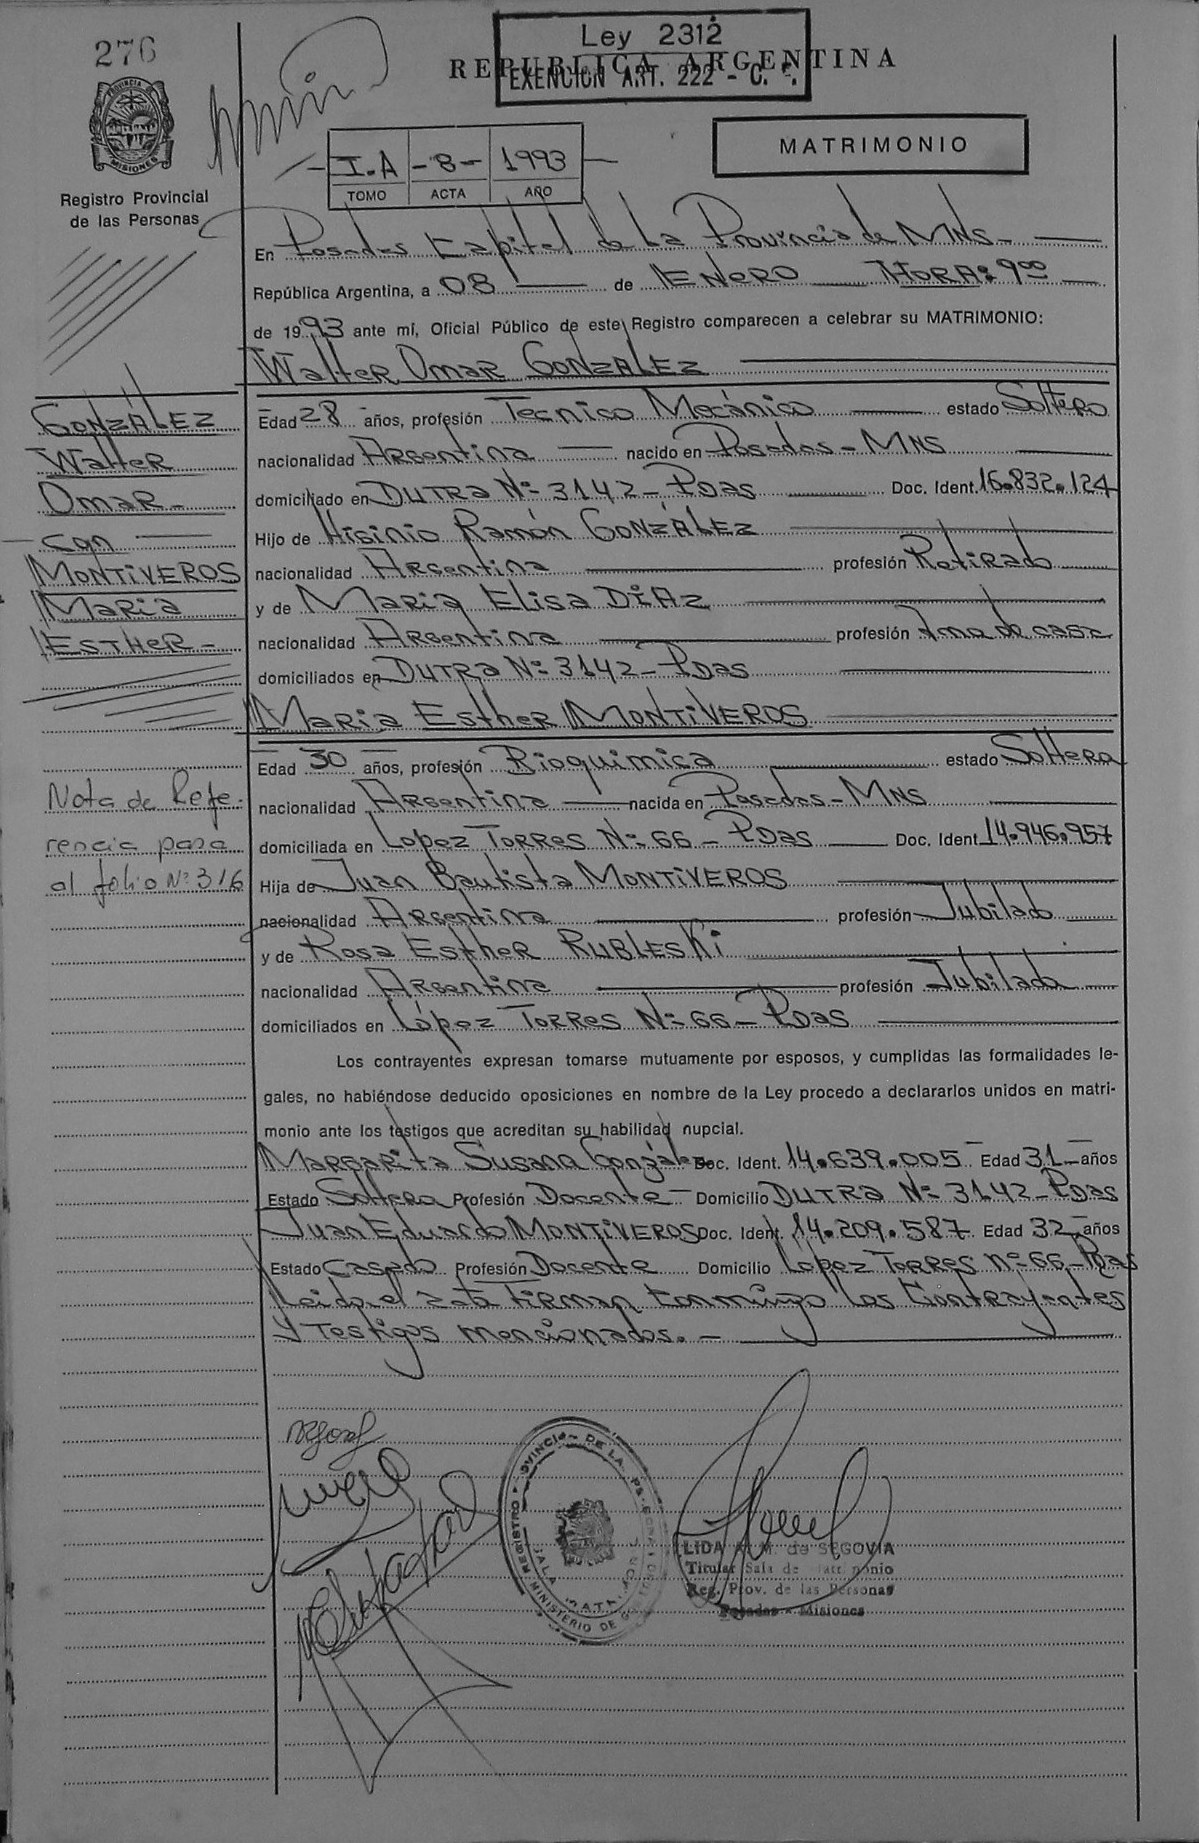 276
Ley 2312
REPUBLICA ARGENTINA
EXENCION ART. 222 - C. F.
PROVINCIA DE
MISIONES
Registro Provincial
de las Personas
I-A -8- 1993
TOMO ACTA AÑO
MATRIMONIO
En Posadas Capital de La Provincia de MNS.
República Argentina, a 08 de ENERO HORA: 9⁰⁰
de 1993 ante mí, Oficial Público de este Registro comparecen a celebrar su MATRIMONIO:
Walter Omar GONZALEZ
GONZÁLEZ
Walter
Omar-
con
MONTIVEROS
Maria
ESTHER-
Edad 28 años, profesión Tecnico Mecánico estado Soltero
nacionalidad Argentina nacido en Posadas-MNS
domiciliado en DUTRA Nº 3142-PDas Doc. Ident. 16.832.124
Hijo de Higinio Ramón GONZÁLEZ
nacionalidad Argentina profesión Retirado
y de Maria Elisa DÍAZ
nacionalidad Argentina profesión Ama de casa
domiciliados en DUTRA Nº 3142-PDas
Maria Esther MONTIVEROS
Nota de Refe-
rencia pasa
al folio Nº 316
Edad 30 años, profesión Bioquimica estado Soltera
nacionalidad Argentina nacida en Posadas-MNS
domiciliada en Lopez Torres Nº 66-PDas Doc. Ident. 14.946.957
Hija de Juan Bautista MONTIVEROS
nacionalidad Argentina profesión Jubilado
y de Rosa Esther RUBLESKI
nacionalidad Argentina profesión Jubilada
domiciliados en López Torres Nº 66-PDas
Los contrayentes expresan tomarse mutuamente por esposos, y cumplidas las formalidades le-
gales, no habiéndose deducido oposiciones en nombre de la Ley procedo a declararlos unidos en matri-
monio ante los testigos que acreditan su habilidad nupcial.
Margarita Susana González Doc. Ident. 14.639.005 Edad 31 años
Estado Soltera Profesión Docente Domicilio DUTRA Nº 3142-PDas
Juan Eduardo MONTIVEROS Doc. Ident. 14.209.587 Edad 32 años
Estado Casado Profesión Docente Domicilio López Torres Nº 66-PDas
Leida el acta Firman Conmigo los Contrayentes
y Testigos mencionados.-
LIDA M. de SEGOVIA
Titular Sala de Matrimonio
Reg. Prov. de las Personas
Posadas - Misiones